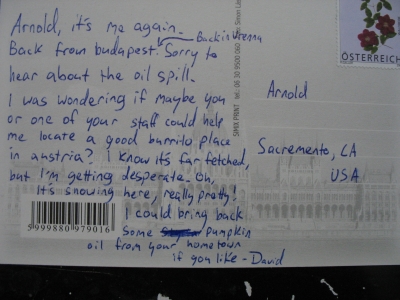 Arnold, it's me again.
Back from budapest. Sorry to
Back in Vienna
hear about the oil spill.
I was wondering if maybe you
or one of your staff could help
me locate a good burrito place
in austria? I know it's far fetched,
but I'm getting desperate. Oh,
It's snowing here, really pretty!
I could bring back
some pumpkin
oil from your hometown
if you like - David
5 999880 979016
SIMIX PRINT
tel.: 06 30 9500 060
Arnold
Sacremento, CA
USA
ÖSTERREICH